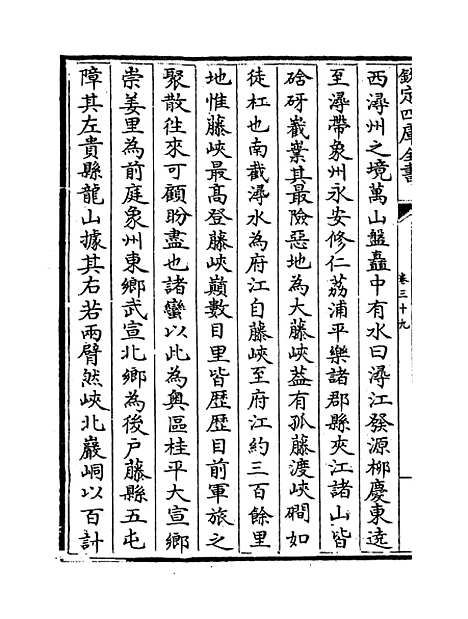 欽定四庫全書
卷三十九
西潯州之境萬山盤矗中有水曰潯江發源柳慶東遶
至潯帶象州永安修仁荔浦平樂諸郡縣夾江諸山皆
硌砑巀嶪其最險惡地為大藤峽葢有孤藤渡峽磵如
徒杠也南截潯水為府江自藤峽至府江約三百餘里
地惟藤峽最高登藤峽巔數目里皆歴歴目前軍旅之
聚散徃來可顧盼盡也諸蠻以此為奥區桂平大宣鄉
崇姜里為前庭象州東鄉武宣北鄉為後戶藤縣五屯
障其左貴縣龍山據其右若兩臂然峽北巖峒以百計